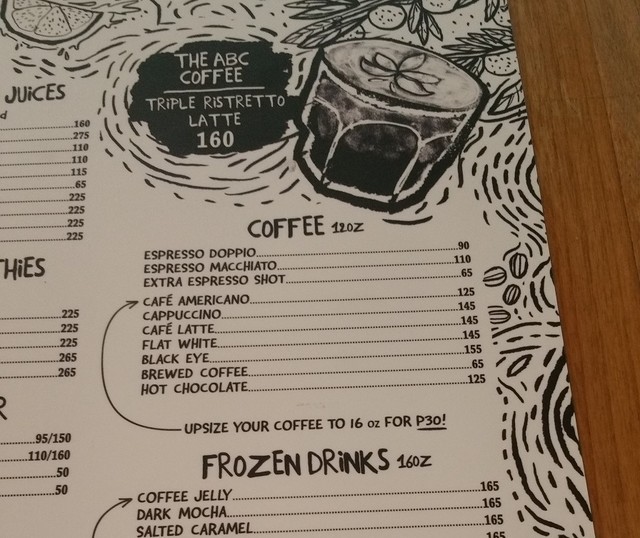 JUiCES
160
275
110
110
115
65
225
225
225
225
THiES
225
225
225
265
265
R
95/150
110/160
50
50
THE ABC
COFFEE
TRiPLE RiSTRETTO
LATTE
160
COFFEE 12OZ
ESPRESSO DOPPIO 90
ESPRESSO MACCHIATO 110
EXTRA ESPRESSO SHOT 65
CAFÉ AMERICANO 125
CAPPUCCINO 145
CAFÉ LATTE 145
FLAT WHITE 145
BLACK EYE 155
BREWED COFFEE 65
HOT CHOCOLATE 125
UPSIZE YOUR COFFEE TO 16 OZ FOR P30!
FROZEN DRiNKS 16OZ
COFFEE JELLY 165
DARK MOCHA 165
SALTED CARAMEL 165
165